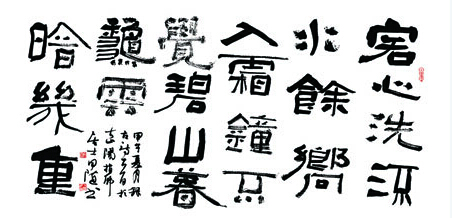 客心洗流
水餘嚮
入霜鐘不
覺碧山暮
龝雲
暗幾重
甲午夏月